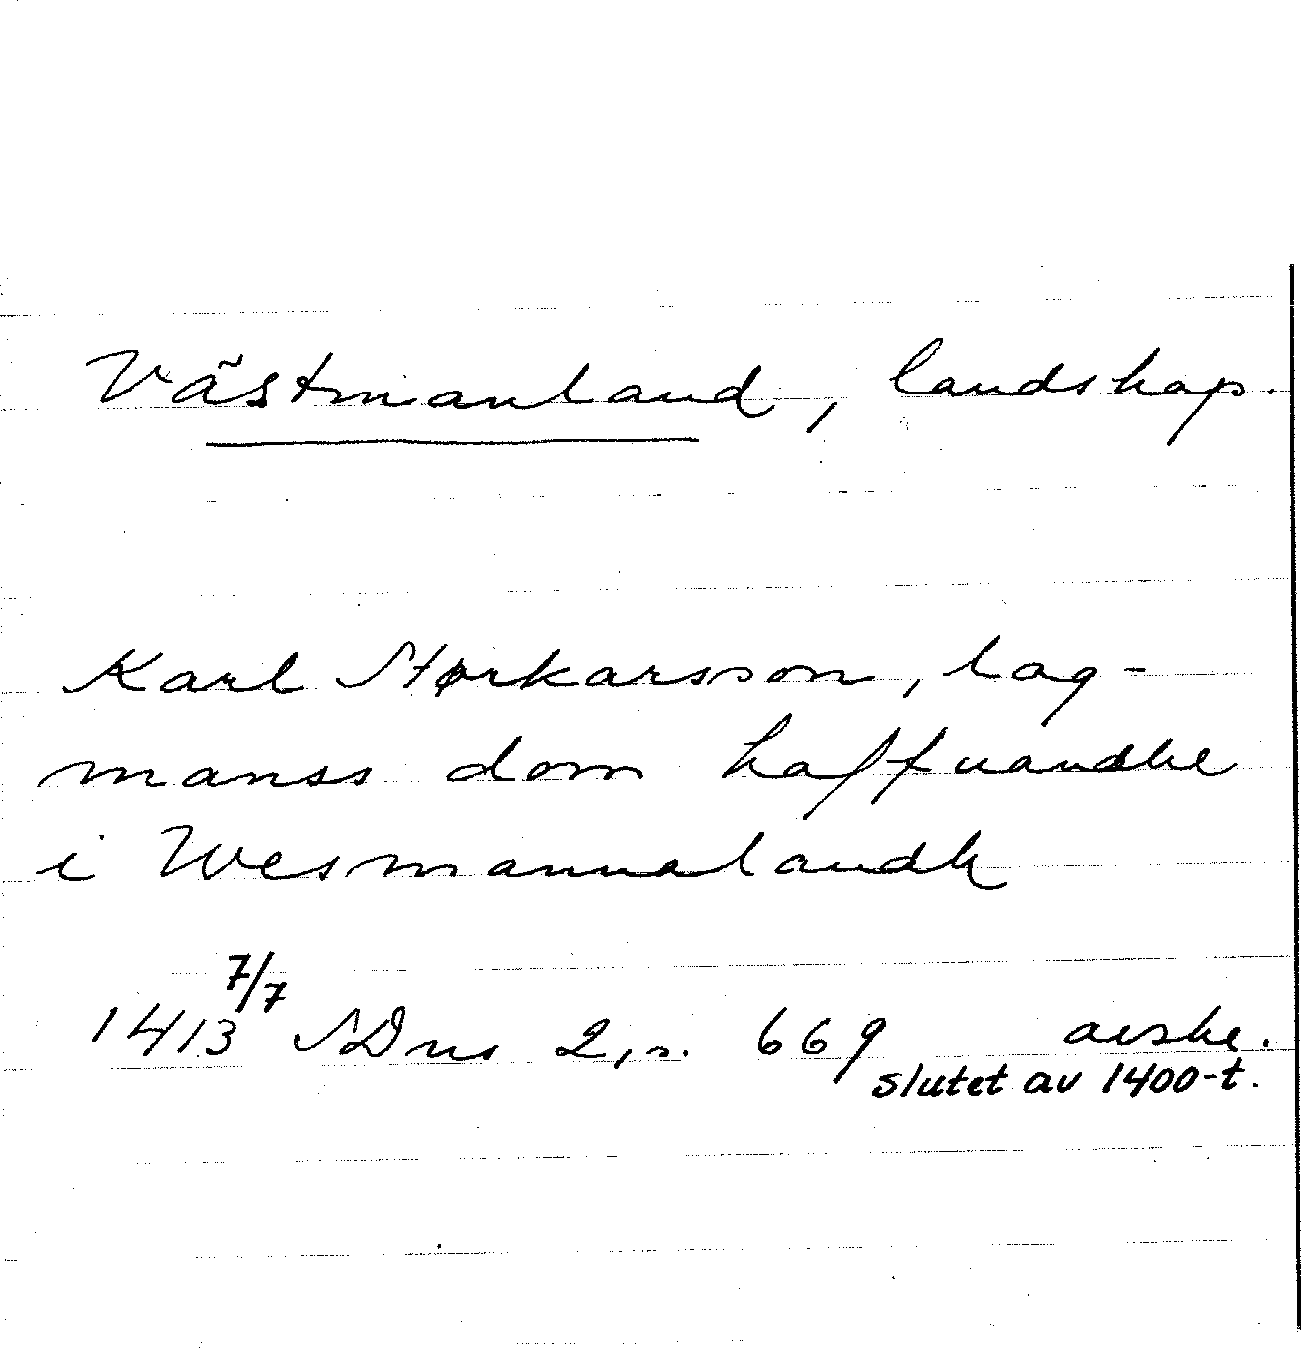 Västmanland, landskap.
Karl Størkarsson, lag-
manss dom haffuandhe
i Wesmannalandh
1413 7/7 SDns 2, s. 669 avskr.
slutet av 1400-t.